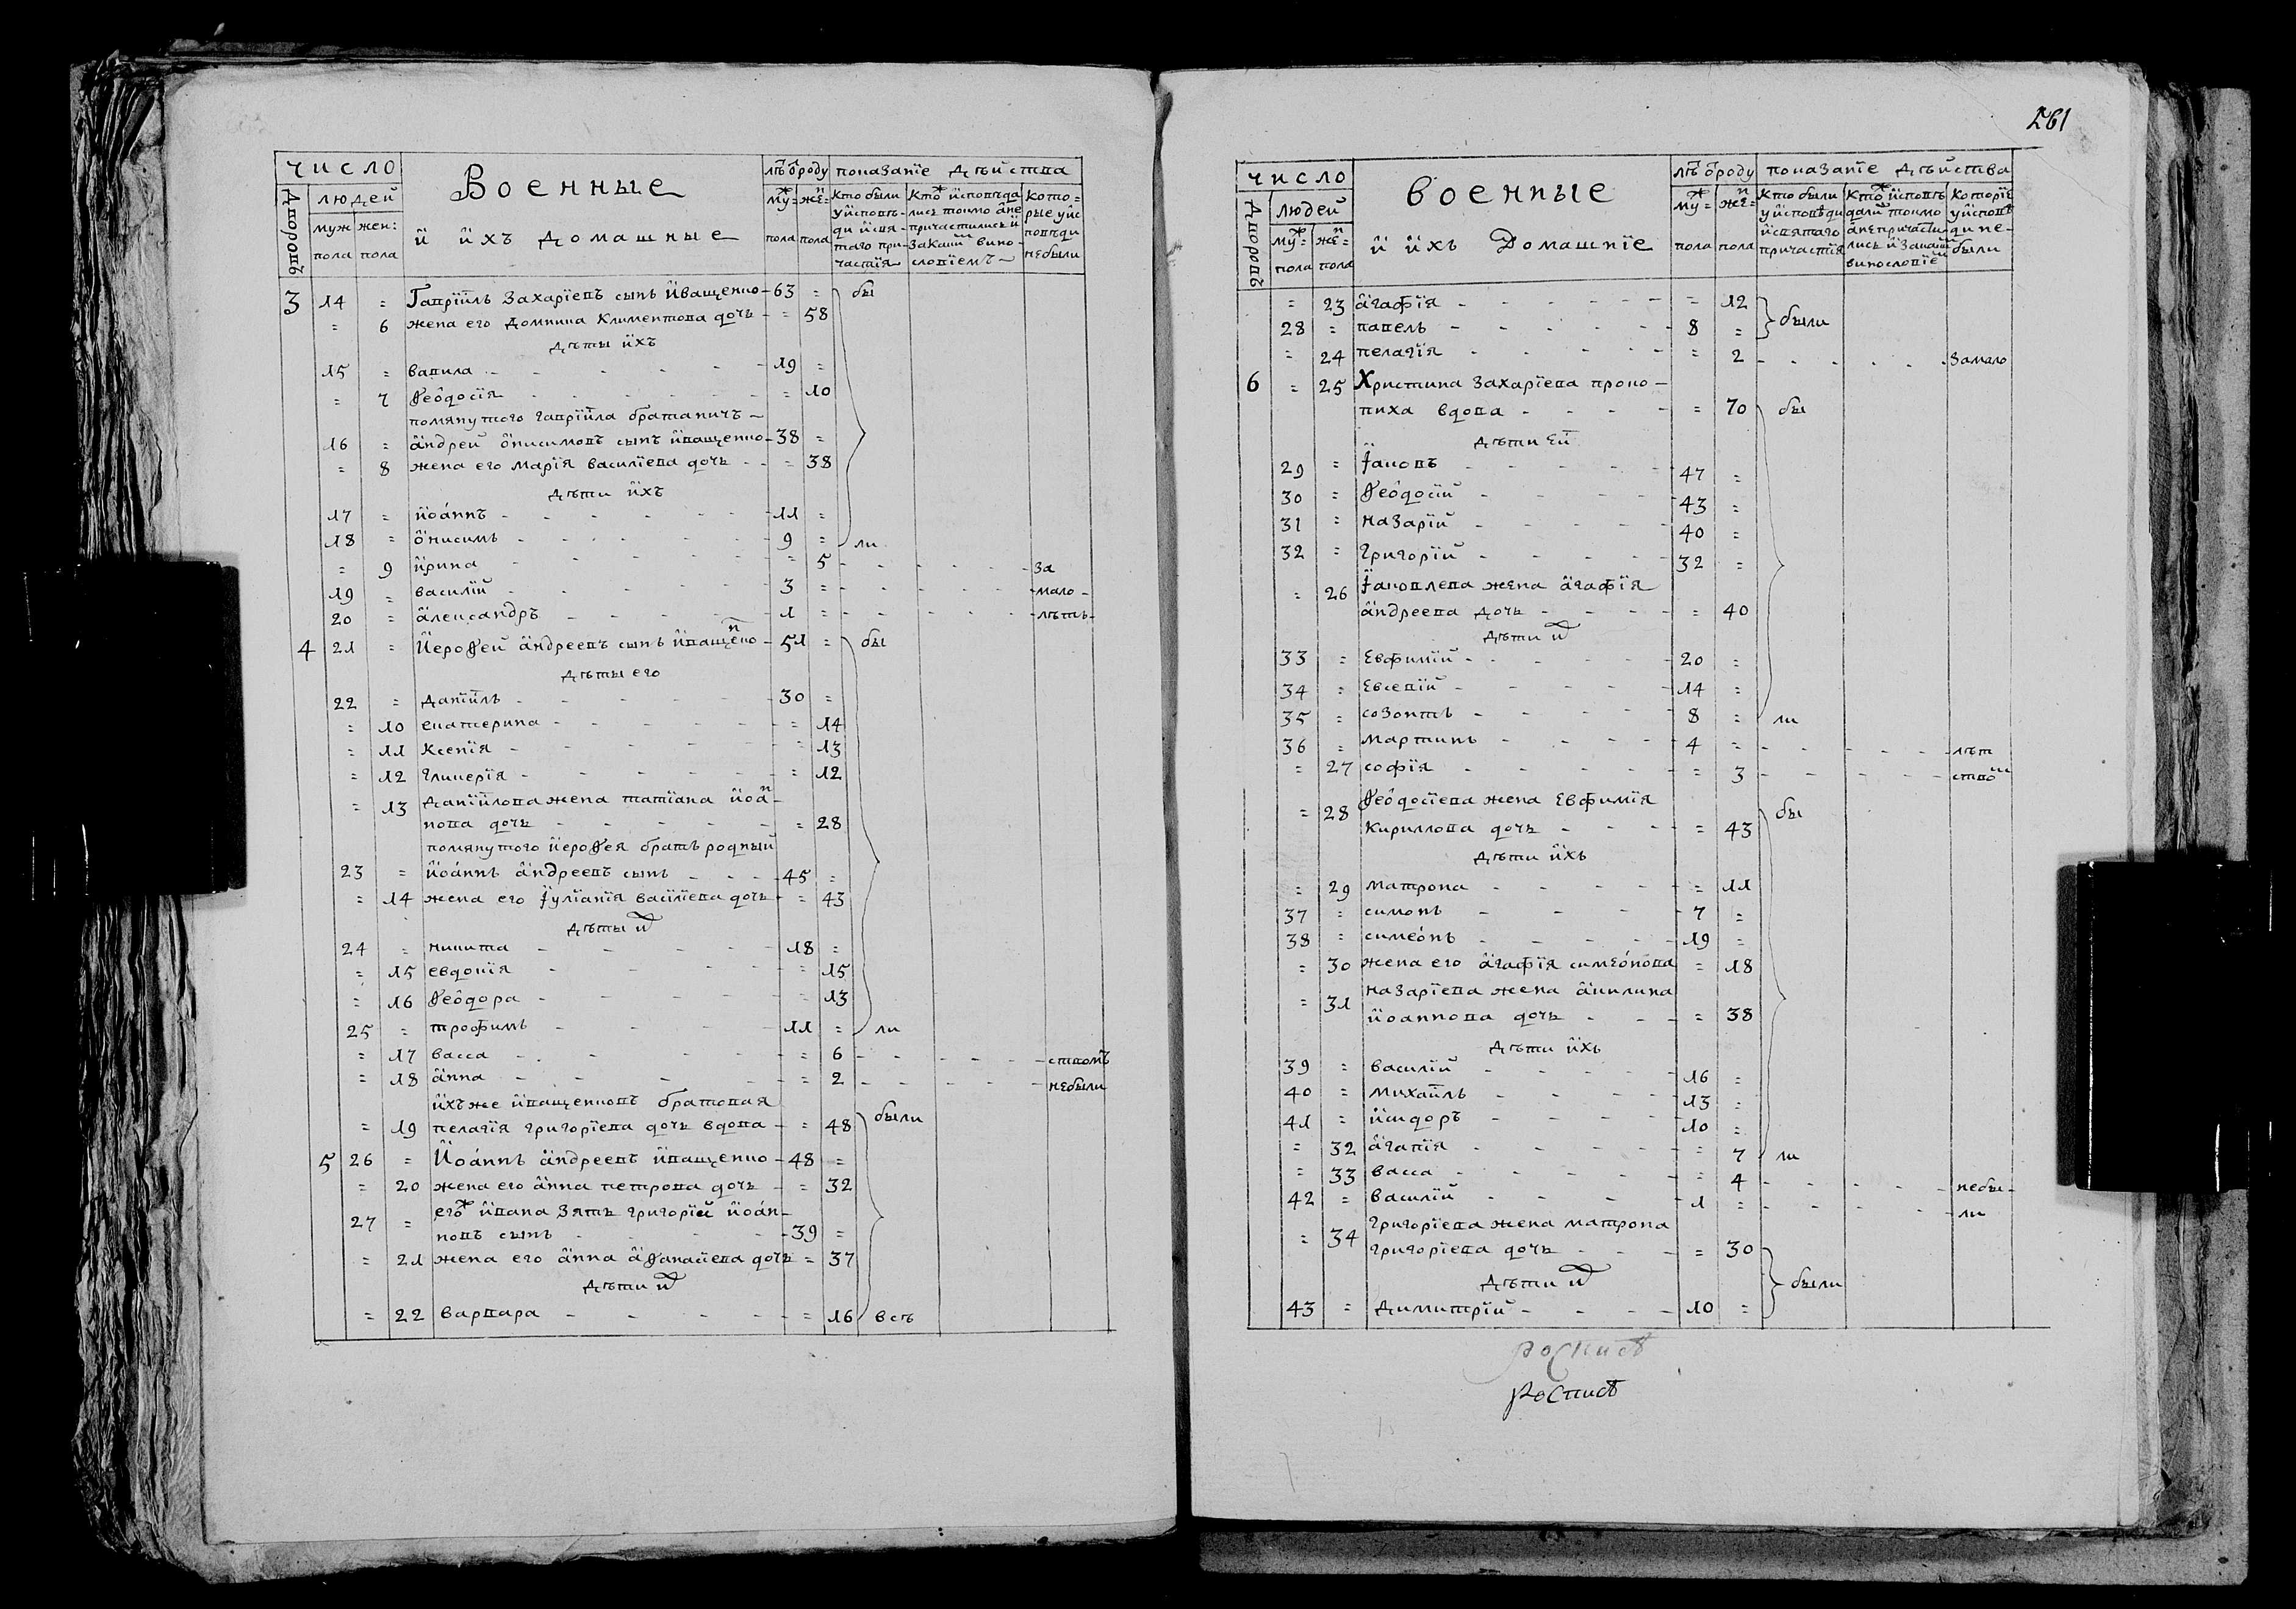 число
Военные
лѣ ѿ роду
показанїе дѣйства
дворовъ
людей
муж пола
жен: пола
й йхъ домашные
муж= пола
жен= пола
Кто были у йсповѣди й святаго причастїя
Ктож йсповѣдались токмо а не причастились й за каким винословїемъ
которые у йсповѣди небыли
3 14 = Гаврїилъ Захарїевъ сынъ Иващенко - 63 = бы
= 6 жена его Домникa Климентова дочь - = 58
дѣты йхъ
15 = вавила - 19 =
= 7 Ѳеодосїя - = 10
помянутого гаврїила братаничъ
16 = андрей онисимовъ сынъ иващенко - 38 =
= 8 жена его марїя василїева дочь - = 38
дѣти йхъ
17 = иоаннъ - 11 =
18 = онисимъ - 9 = ли
= 9 ирина - = 5 - за
19 = василїй - 3 = - мало-
20 = александръ - 1 = - лѣтъ-
4 21 = Иероѳей андреевъ сынъ иващенко - 51 = бы
дѣты его
22 = данїилъ - 30 =
= 10 екатерина - = 14
= 11 ксенїя - = 13
= 12 гликерїя - = 12
= 13 данїилова жена татїана иоан-
нова дочь - = 28
помянутого иероѳея братъ родный
23 = иоаннъ андреевъ сынъ - 45 =
= 14 жена его Іулїанїя василїева дочь - = 43
дѣты их
24 = никита - 18 =
= 15 евдокїя - = 15
= 16 Ѳеодора - = 13
25 = трофимъ - 11 = ли
= 17 васса - = 6 - ствомъ
= 18 анна - = 2 - небыли
ихъже иващенковъ братовая
= 19 пелагїя григорїева дочь вдова - = 48 были
5 26 = Иоаннъ андреевъ иващенко - 48 =
= 20 жена его анна петрова дочь - = 32
27 = егож ивана зять григорїй иоан-
новъ сынъ - 39 =
= 21 жена его анна аѳанасїева дочь = 37
дѣти их
= 22 варвара - = 16 всѣ
261
число
военные
лѣ ѿ роду
показанїе дѣйства
дворовъ
людей
муж= пола
жен= пола
й йхъ Домашнїе
муж= пола
жен= пола
Кто были у йсповѣди й святаго причастїя
Ктож йсповѣдалис токмо а непричастились й за каким винословїе
Которїе у йсповѣди не-были
= 23 агафїя - = 12 были
28 = павелъ - 8 =
= 24 пелагїя - = 2 - Замало
6 = 25 Христина Захарїева проко-
пиха вдова - = 70 бы
дѣти ей
29 = Іаковъ - 47 =
30 = Ѳеодосїй - 43 =
31 = назарїй - 40 =
32 = григорїй - 32 =
= 26 Іаковлева жена агафїя
андреева дочь - = 40
дѣти их
33 = Евфимїй - 20 =
34 = Евсевїй - 14 =
35 = созонтъ - 8 = ли
36 = мартинъ - 4 = - лѣт
= 27 софїя - = 3 - ством
= 28 Ѳеодосїева жена Евфимїя
кириллова дочь - = 43 бы
дѣти ихъ
= 29 матрона - = 11
37 = симонъ - 7 =
38 = симеонъ - 19 =
= 30 жена его агафїя симеонова = 18
= 31 назарїева жена акилина
иоаннова дочь - = 38
дѣти ихъ
39 = василїй - 16 =
40 = михаилъ - 13 =
41 = исидоръ - 10 =
= 32 агапїя - = 7 ли
= 33 васса - = 4 - небы-
42 = василїй - 1 = - ли
= 34 григорїева жена матрона
григорїева дочь - = 30
дѣти их были
43 = димитрїй - 10 =
роспись
роспись